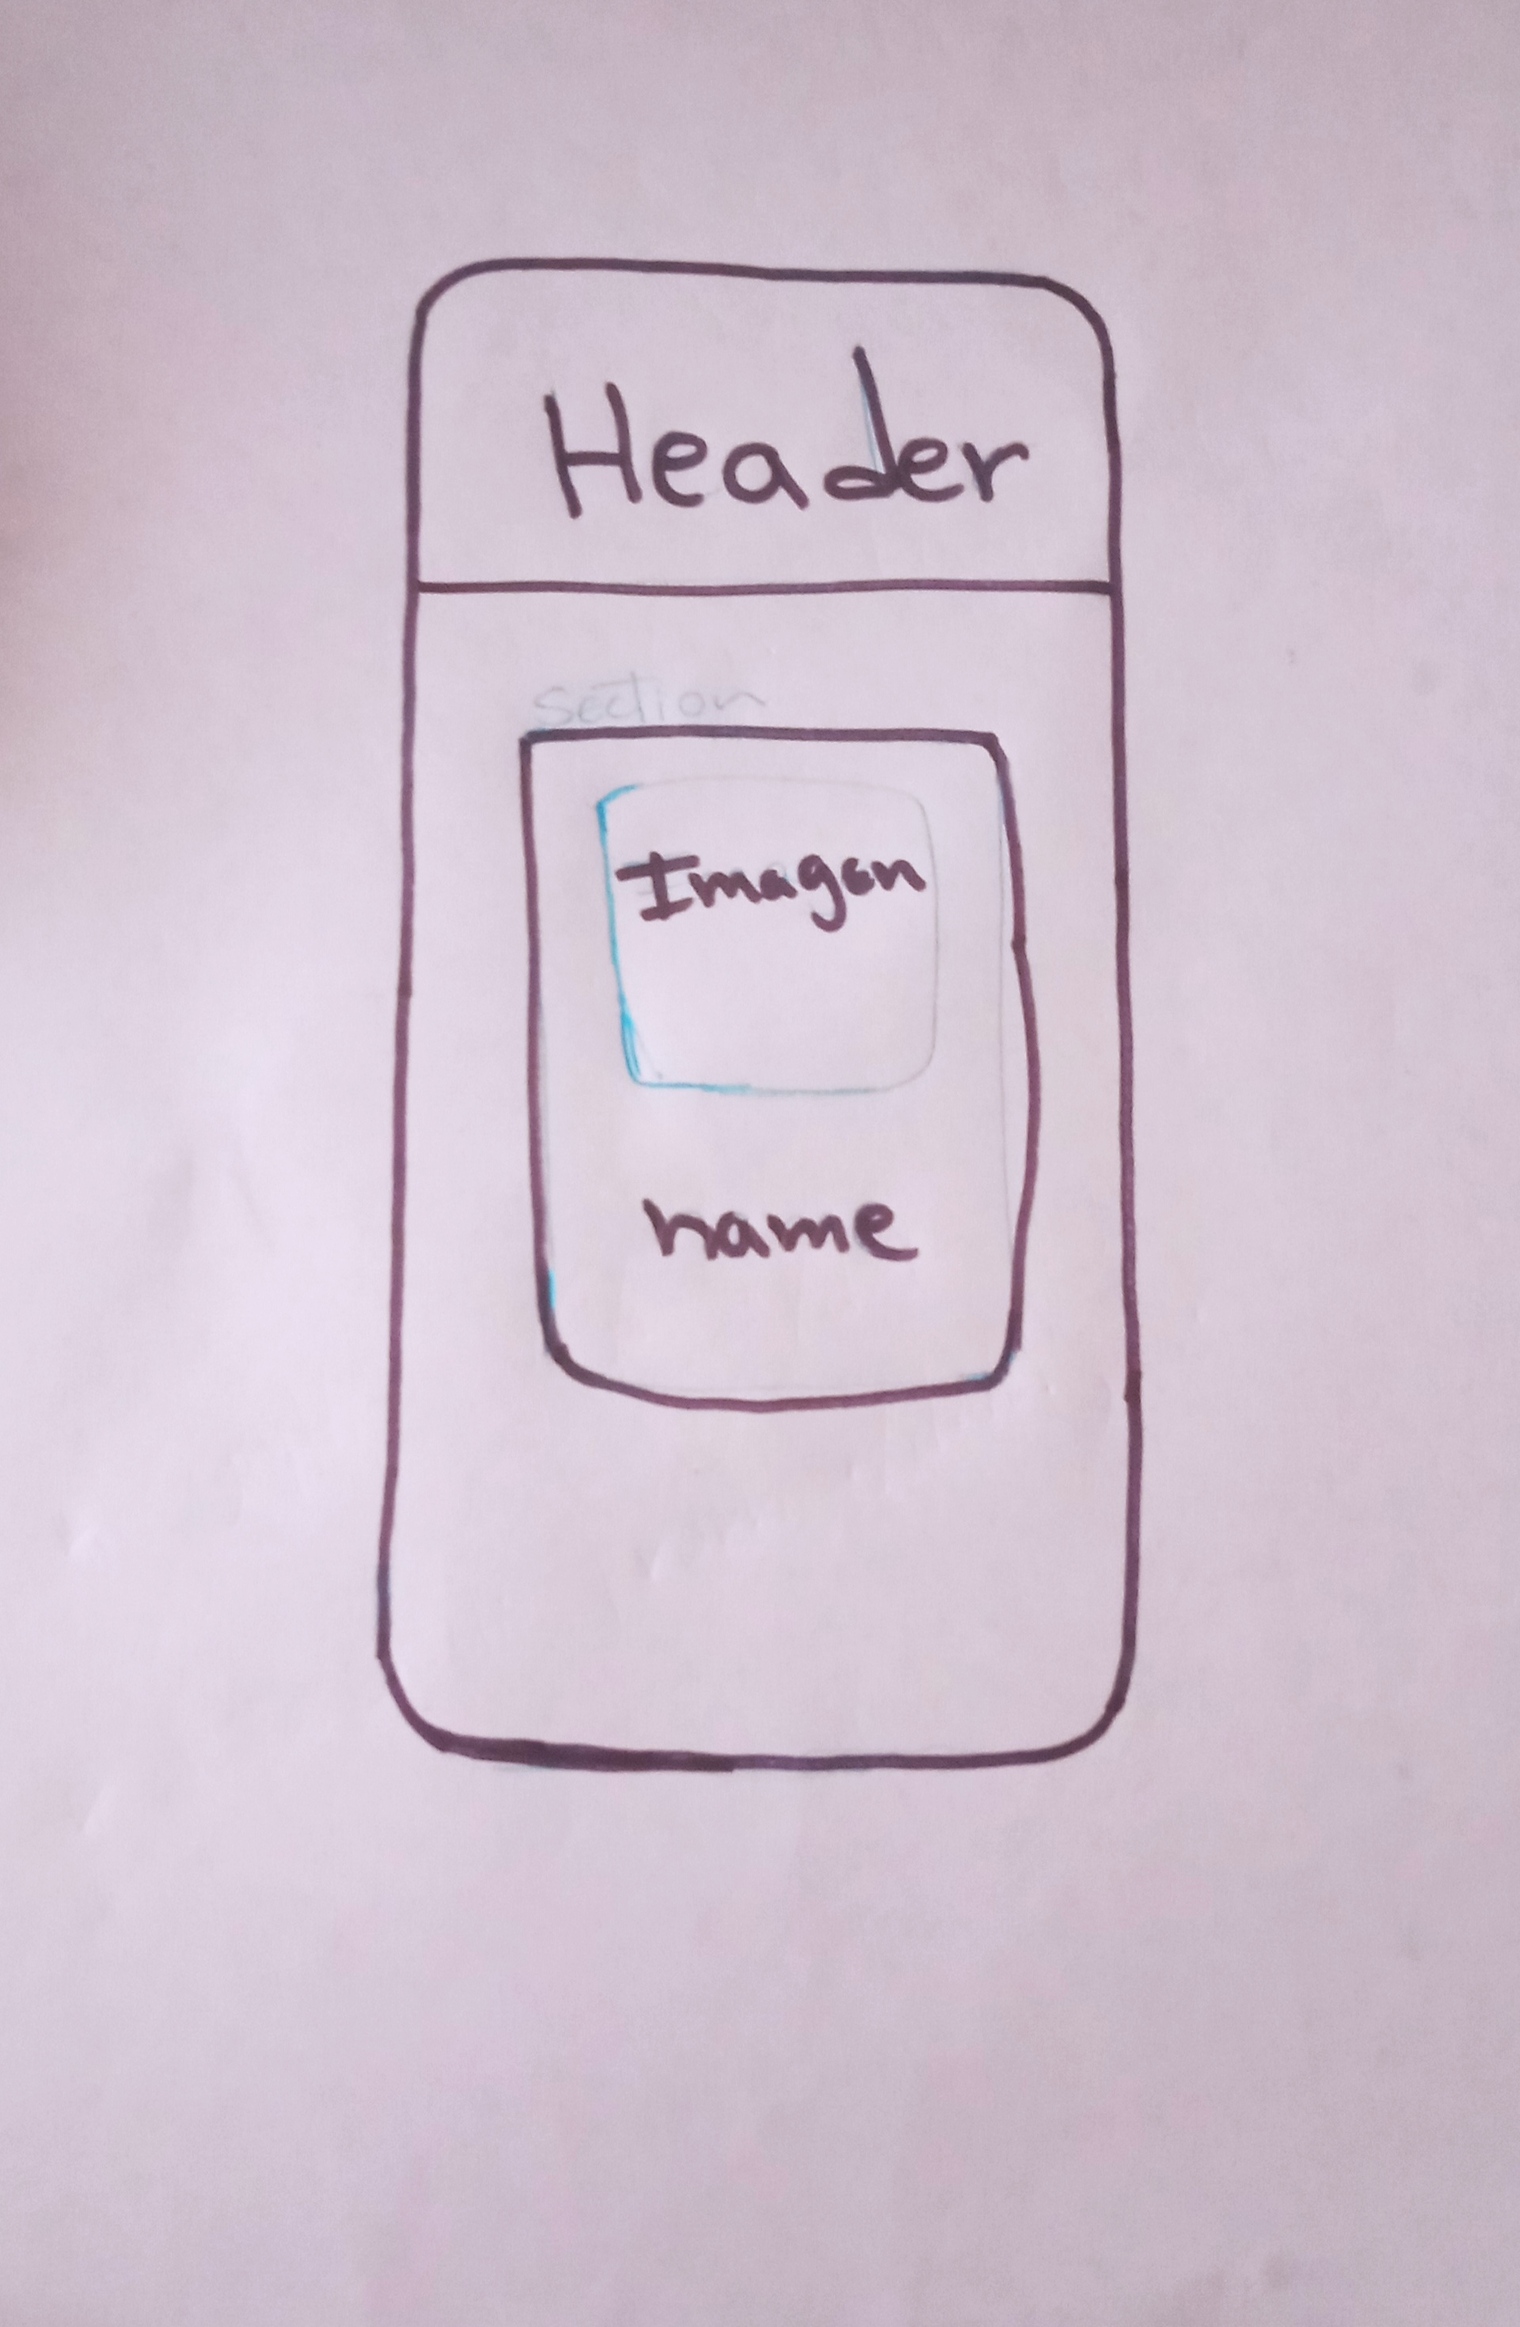 Header
Section
Imagen
name